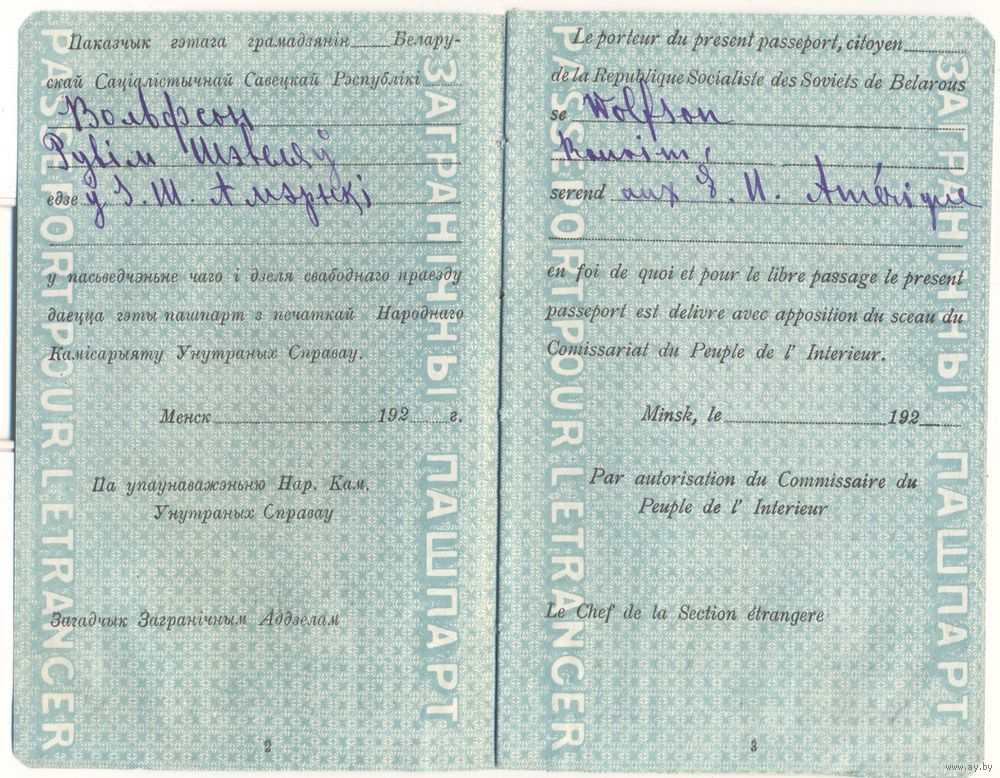 Паказчык гэтага грамадзянін Белару-
скай Саціалістычнай Савецкай Рэспублікі
Вольфсон
Рувім
едзе ў З. Ш. Амэрыкі
у пасьведчэньне чаго і дзеля свабоднаго праезду
даецца гэты пашпарт з печаткай Народнаго
Камісарыяту Унутраных Справау.
Менск 192 г.
Па упаунаважэньню Нар. Кам.
Унутраных Справау
Загадчык Загранічным Аддзелам
2
PASSEPORT POUR LETRANCER
ЗАГРАНІЧНЫ ПАШПАРТ
Le porteur du present passeport, citoyen
de la Republique Socialiste des Soviets de Belarous
se Wolfson
serend aux E. U. Amérique
en foi de quoi et pour le libre passage le present
passeport est delivre avec apposition du sceau du
Comissariat du Peuple de l' Interieur.
Minsk, le 192
Par autorisation du Commissaire du
Peuple de l' Interieur
Le Chef de la Section étrangere
3
PASSEPORT POUR LETRANCER
ЗАГРАНІЧНЫ ПАШПАРТ
www.ay.by